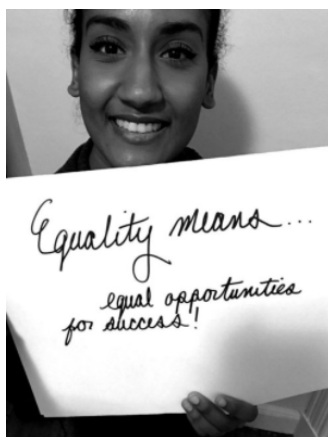 Equality means...
equal opportunities
for success!